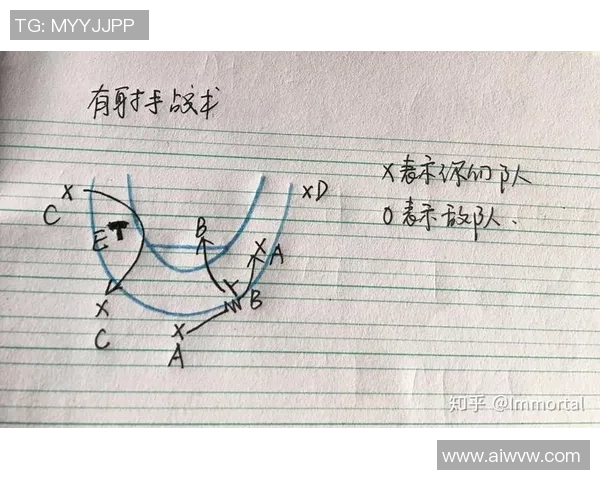 TG: MYYJJPP
有射手战术
X表示你们队
O表示敌队.
X
C
E
X
C
B
X A
B
X
A
XD
知乎 @Immortal
www.aiwvw.com